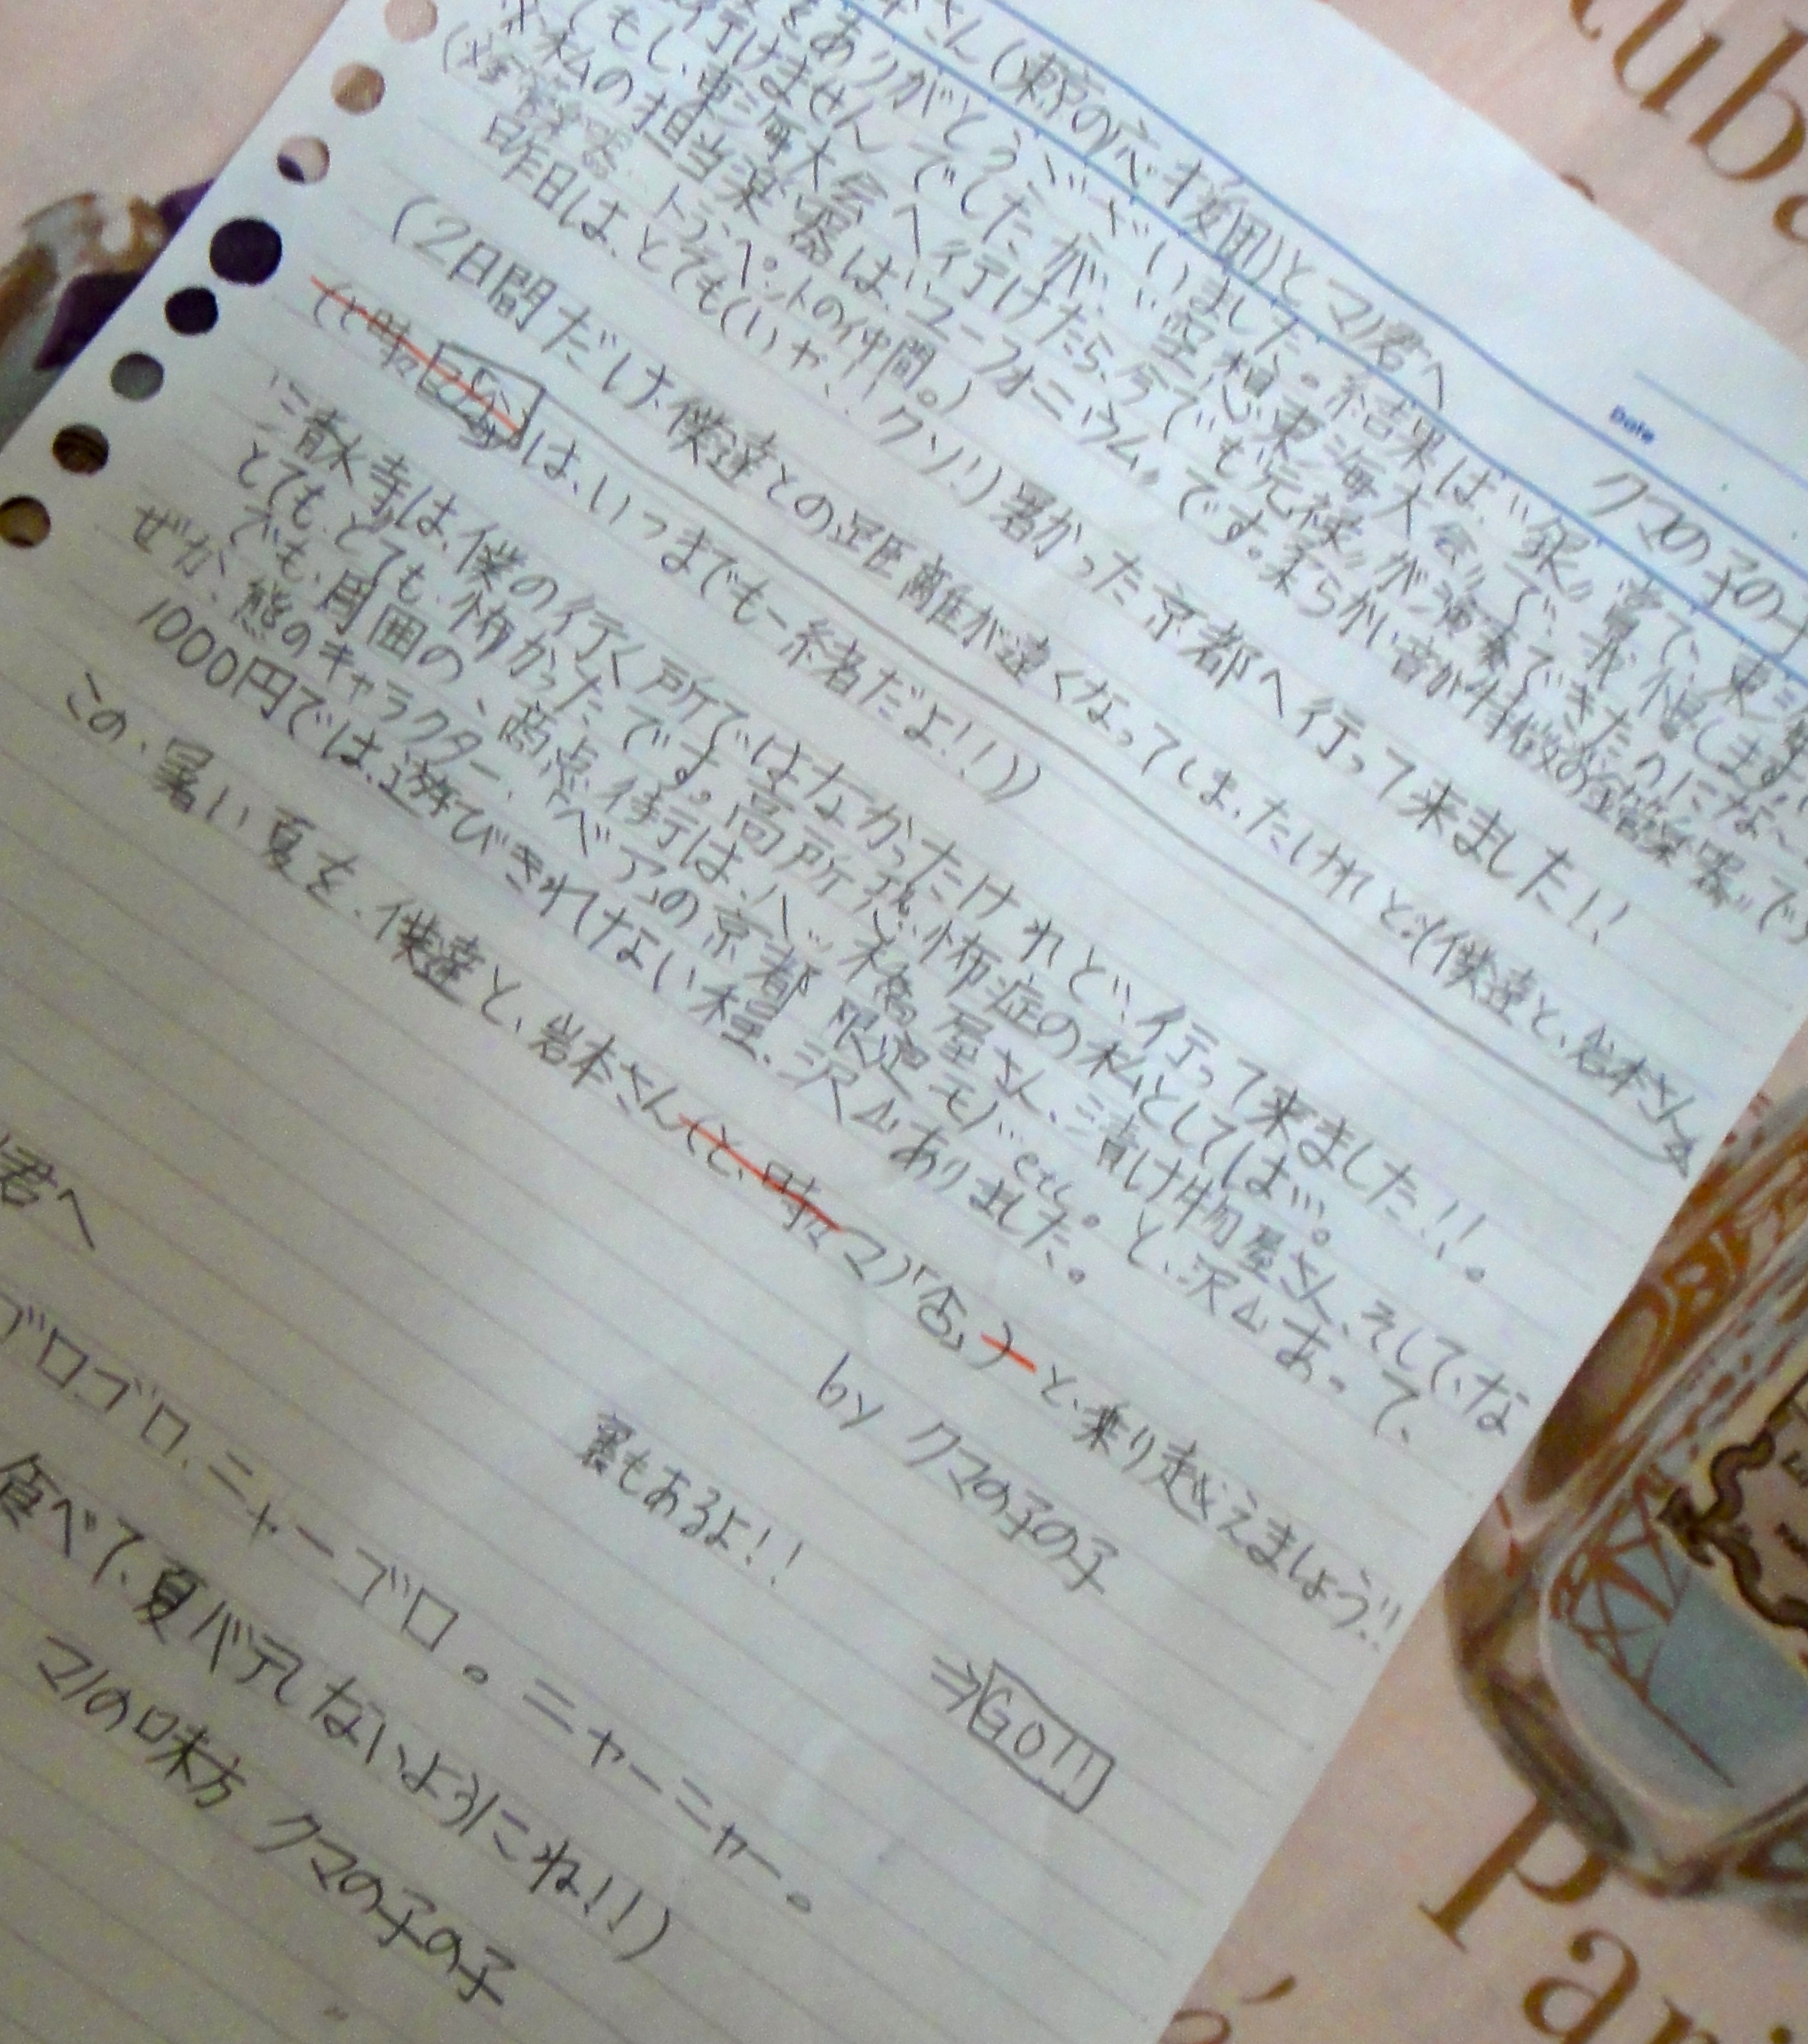 Date
クマの子の子
さん(東京の応援団)とマノ君へ
をありがとうございました。結果は"銀"賞で、東海
行けませんでしたが、"空想東海大会"で、我慢します。
もし、東海大会へ行けたら、今でも"元禄"が演奏できたのにな〜
※私の担当楽器は、"ユーフォニウム"です。柔らかい音が特徴の金管楽器"です
トランペットの仲間。)
昨日は、とても(いや、、クソ!!)暑かった京都へ行って来ました!!
(2日間だけ、僕達との距離が遠くなってしまったけれど…(僕達と、岩本さん
は、いつまでも一緒だよ!!))
清水寺は、僕の行く所ではなかったけれど、行って来ました!!。
とても、とても、怖かったです。高所恐怖症の私としては…。
でも、周囲の、商店街は、八ッ橋屋さん、漬け物屋さん、そして、な
ぜか、熊のキャラクター、「ベア」の京都限定モノetc。と、沢山あって、
1000円では、遊びきれない程、沢山ありました。
この、暑い夏を、僕達と、岩本さん(と、時々マノ「店」)と、乗り越えましょう!!
by クマの子の子
裏もあるよ!!
⇒GO!!
君へ
ブロ.ゴロ.ニャーゴロ。ニャーニャー。
食べて、夏バテしないようにね!!)
マノの味方 クマの子の子
tuba
Par